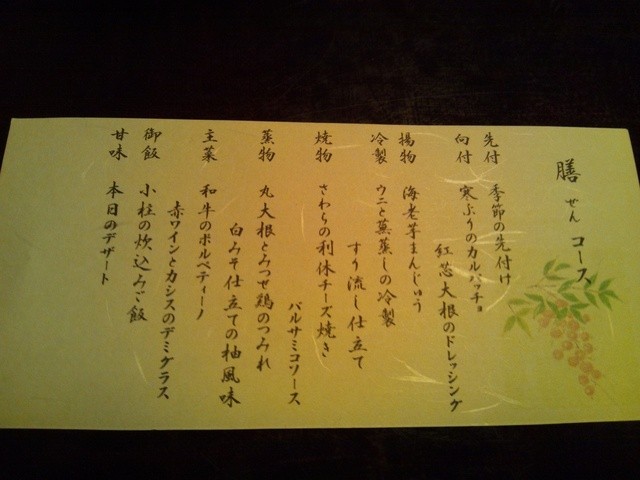 膳 せん コース
先付 季節の先付け
向付 寒ぶりのカルパッチョ
紅芯大根のドレッシング
揚物 海老芋まんじゅう
冷製 ウニと蕪蒸しの冷製
すり流し仕立て
焼物 さわらの利休チーズ焼き
バルサミコソース
蒸物 丸大根とみつせ鶏のつみれ
白みそ仕立ての柚風味
主菜 和牛のポルペティーノ
赤ワインとカシスのデミグラス
御飯 小柱の炊込みご飯
甘味 本日のデザート